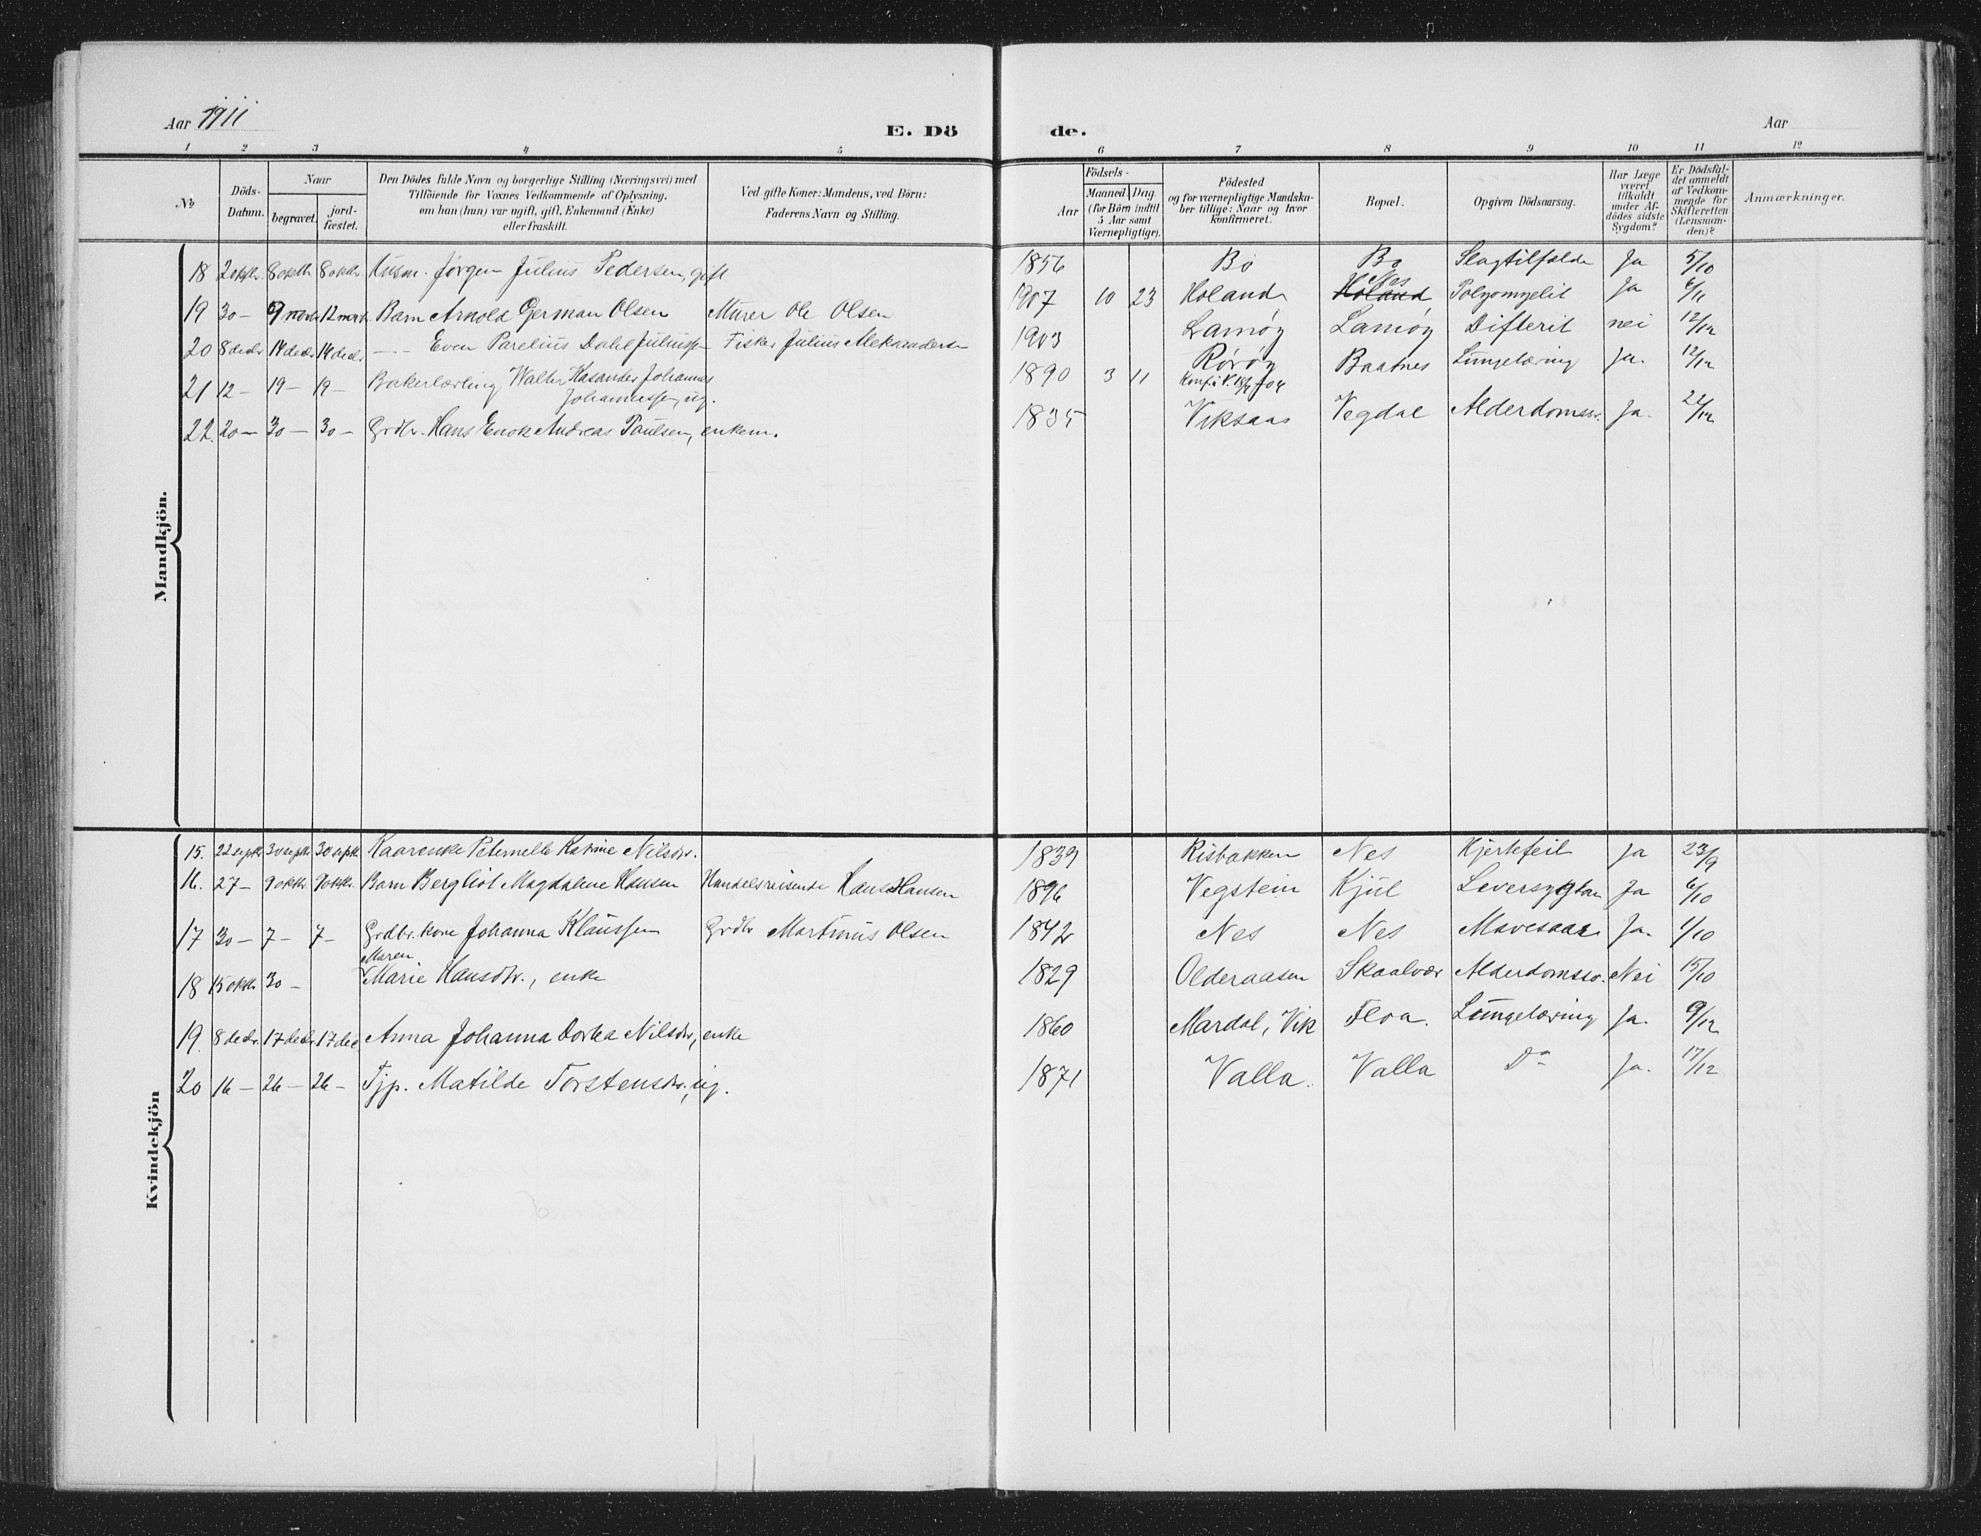 Aar 1911
E. Dö de.
Aar
1 2 3 4 5 6 7 8 9 10 11 12
№
Döds-Datum.
Naar
begravet.
jord-fæstet.
Den Dödes fulde Navn og borgerlige Stilling (Næringsvei) med
Tilföiende for Voxnes Vedkommende af Oplysning,
om han (hun) var ugift, gift, Enkemand (Enke)
eller fraskilt.
Ved gifte Koner: Mandens, ved Börn:
Faderens Navn og Stilling.
Födsels-
Aar
Maaned
Dag
(for Börn indtil
5 Aar samt
Værnepligtige).
Födested
og for værnepligtige Mandska-
ber tillige: Naar og hvor
konfirmeret.
Bopæl.
Opgiven Dödsaarsag.
Har Læge
været
tilkaldt
under Af-
dödes sidste
Sygdom?
Er Dödsfal-
det anmeldt
af Vedkom-
mende for
Skifteretten
(Lensman-
den)?
Anmærkninger.
Mandkjön.
18 2 oktbr. 8 oktbr. 8 oktbr. Husm. Jørgen Julius Pedersen, gift 1856 Bø Bø Slagtilfælde Ja 5/10
19 30 — 9 novbr 12 novbr. Barn Arnold German Olsen Murer Ole Olsen 1907 10 23 Holand Holand Nes Polyomyelit Ja 6/11
20 8 decbr. 14 decbr. 14 decbr. — Even Parelius Dahl Juliussen Fisker Julius Aleksandersen 1903 Lamøy Lamøy Difterit nei 12/12
21 12 — 19 — 19 — Bakerlærling Walter Kasander Johannes
Johannessen, ug. 1890 3 11 Rørøy Baatnes Lungetæring Ja. 12/12
22. 20 — 30 — 30 — Grdbr. Hans Enok Andreas Paulsen, enkem. 1835 Viksaas Vegdal Alderdomssv. Ja. 22/12
Kvindekjön
15. 22 septbr 30 septbr 30 septbr Kaarenke Peternelle Katrine Nilsdtr. 1839 Risbakken Nes Hjertefeil Ja 23/9
16. 27 — 9 oktbr. 9 oktbr. Barn Bergliot Magdalene Hansen Handelsreisende Hans Hansen 1896 Vegstein Kjul Leversygdom Ja 6/10
17 30 — 7 — 7 — Grdbr.kone Johanna Klaussen Grdbr Martinus Olsen 1842 Nes Nes Mavesaar Ja. 1/10
Maren
18 15 oktbr 30 — Marie Hansdtr., enke 1829 Olderaasen Skaalvær Alderdomssv. Nei 15/10
19. 8 decbr. 17 decbr. 17 dec Anna Johanna Dortea Nilsdtr, enke 1860 Mardal, Vik Floa. Lungetæring Ja. 9/12
20 16 — 26 — 26 — Tjp. Matilde Torstensdtr., ug. 1871 Valla. Valla Do Ja. 17/12